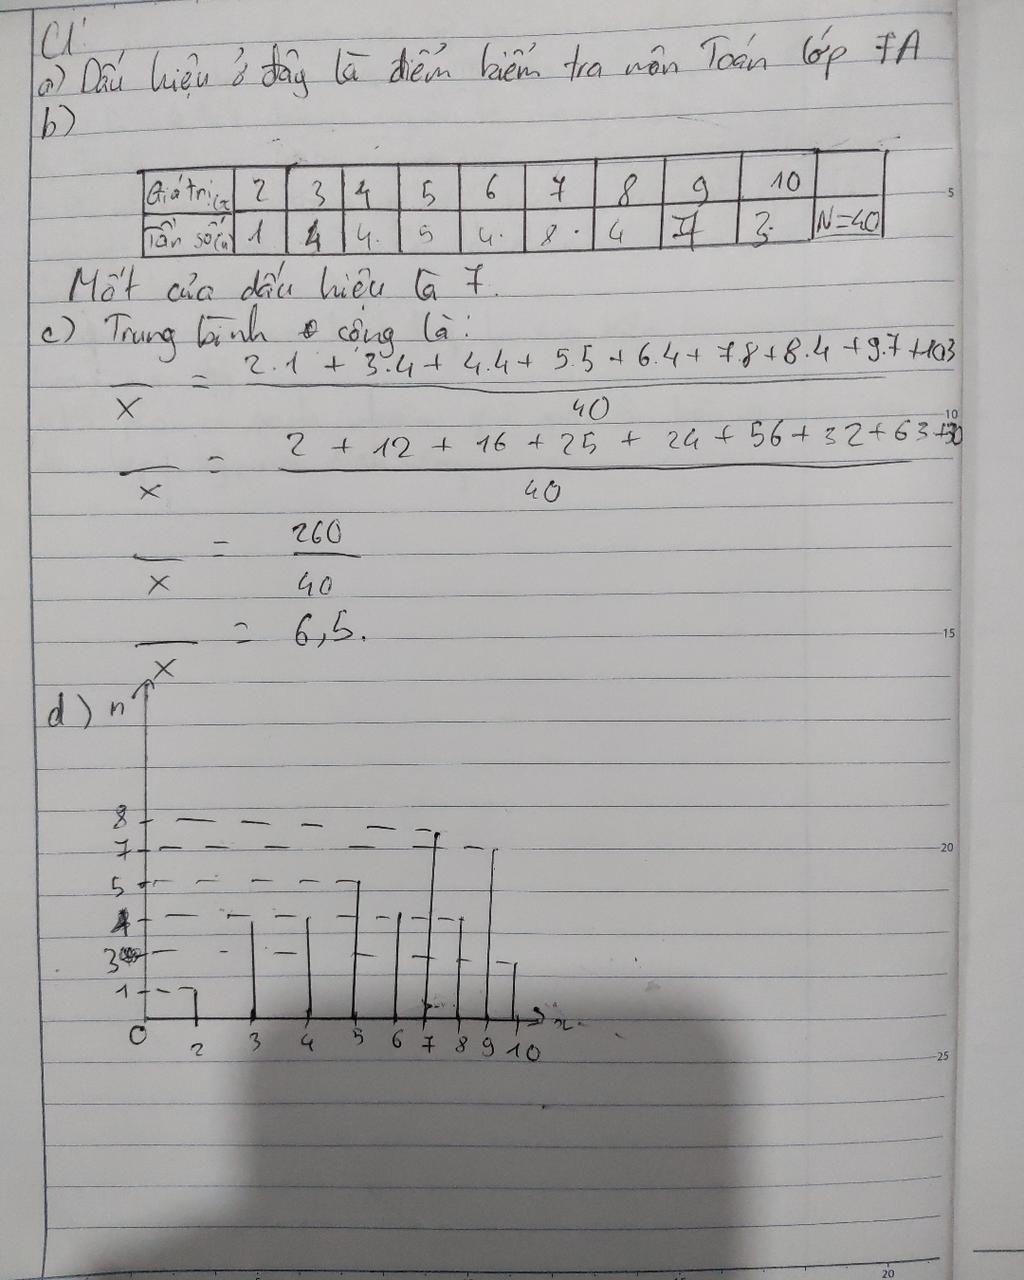 C1:
a) Dấu hiệu ở đây là điểm kiểm tra môn Toán lớp 7A
b)
Giá trị (x 2 3 4 5 6 7 8 9 10
Tần số (n 1 4 4. 5 4. 8. 4 7 3. N=40
Mốt của dấu hiệu là 7.
c) Trung bình cộng là:
2.1 + 3.4 + 4.4 + 5.5 + 6.4 + 7.8 + 8.4 + 9.7 + 10.3
X =
40
2 + 12 + 16 + 25 + 24 + 56 + 32 + 63 + 30
X =
40
260
X =
40
X = 6,5.
d) n
8
7
5
4
3
1
0 2 3 4 5 6 7 8 9 10 x.
5
10
15
20
25
20